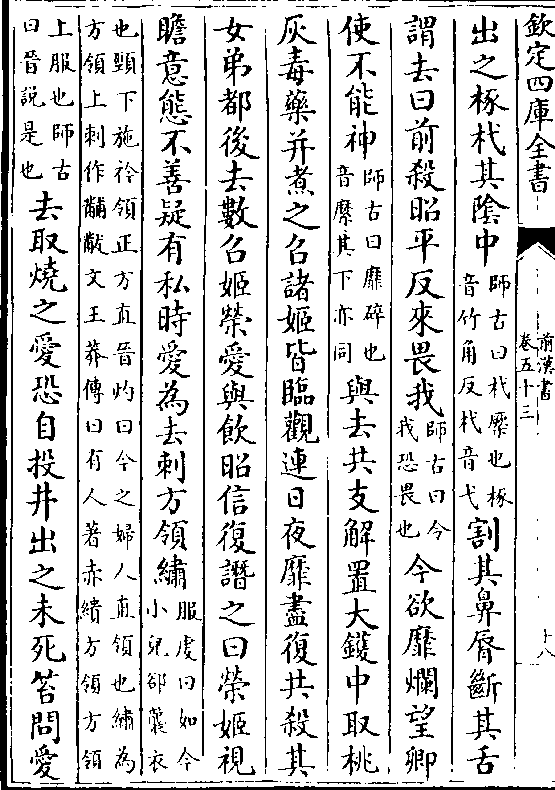 欽定四庫全書
前漢書
卷五十三
十八
出之椓杙其陰中師古曰杙橜也椓音竹角反杙音弋割其鼻脣斷其舌
謂去曰前殺昭平反來畏我師古曰今我恐畏也今欲靡爛望卿
使不能神師古曰靡碎也音縻其下亦同與去共支解置大鑊中取桃
灰毒藥并煮之召諸姬皆臨觀連日夜靡盡復共殺其
女弟都後去數召姬榮愛與飲昭信復譖之曰榮姬視
瞻意態不善疑有私時愛為去刺方領繡服虔曰如今小兒郤襲衣
也頸下施衿領正方直晉灼曰今之婦人直領也繡為方領上刺作黼黻文王莽傳曰有人著赤繢方領方領
上服也師古曰晉說是也去取燒之愛恐自投井出之未死笞問愛